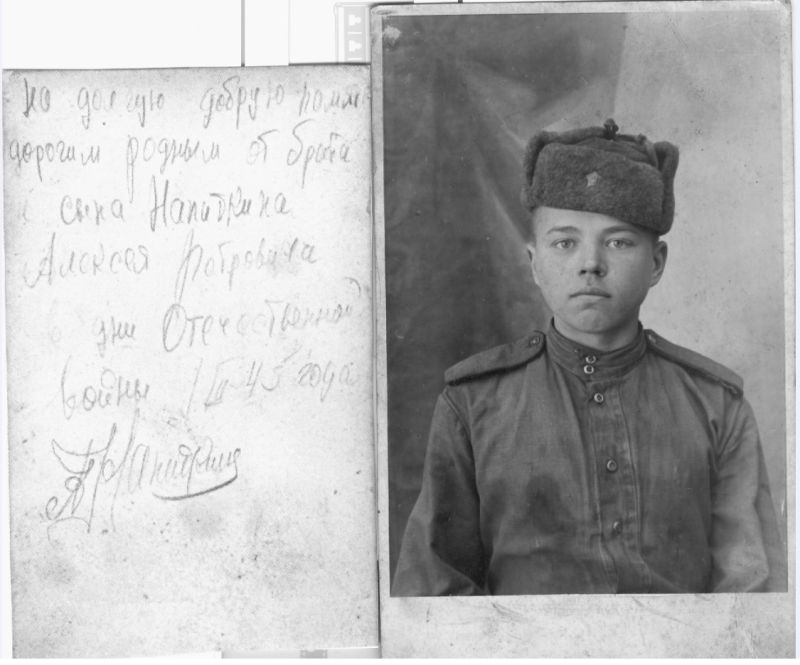 На долгую добрую памят
дорогим родным от брата
и сына Напиткина
Алексея Петровича
в дни Отечественной
войны 1 III-43 года
АНапиткин